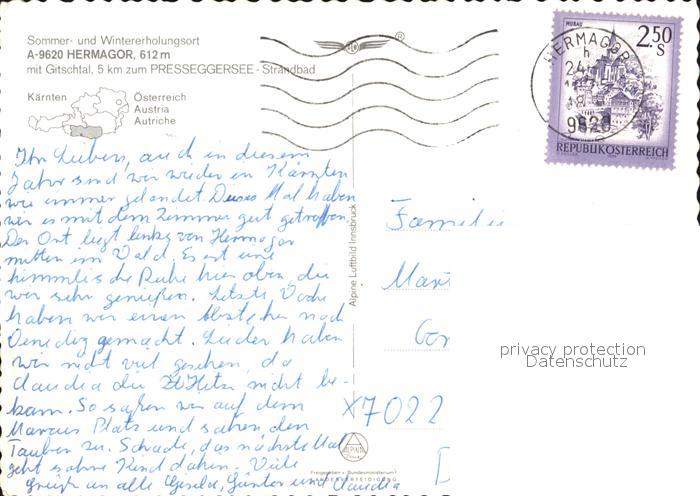 Sommer- und Wintererholungsort
A-9620 HERMAGOR, 612 m
mit Gitschtal, 5 km zum PRESSEGGERSEE - Strandbad
Kärnten
Österreich
Austria
Autriche
Ihr Lieben, auch in diesem
Jahr sind wir wieder in Kärnten
wie immer gelandet. Dieses Mal haben
wir es mit dem Zimmer gut getroffen.
Der Ort liegt links von Hermagor
mitten im Wald. Es ist eine
himmlische Ruhe hier oben, die
wir sehr genießen. Letzte Woche
haben wir einen Abstecher nach
Venedig gemacht. Leider haben
wir nicht viel gesehen, da
Claudia die Hitze nicht be-
kam. So saßen wir auf dem
Marcus Platz und sahen den
Tauben zu. Schade, das nächste Mal
geht es ohne Kind dahin. Viele
Grüße an alle Gisela, Günter und Claudia
Alpine Luftbild Innsbruck
ALPINE
Freigegeben v. Bundesministerium f.
LANDESVERTEIDIGUNG
®
MURAU
2.50
S
REPUBLIK ÖSTERREICH
HERMAGOR
9620
Familie
Mari
Gor
X7022
D
privacy protection
Datenschutz